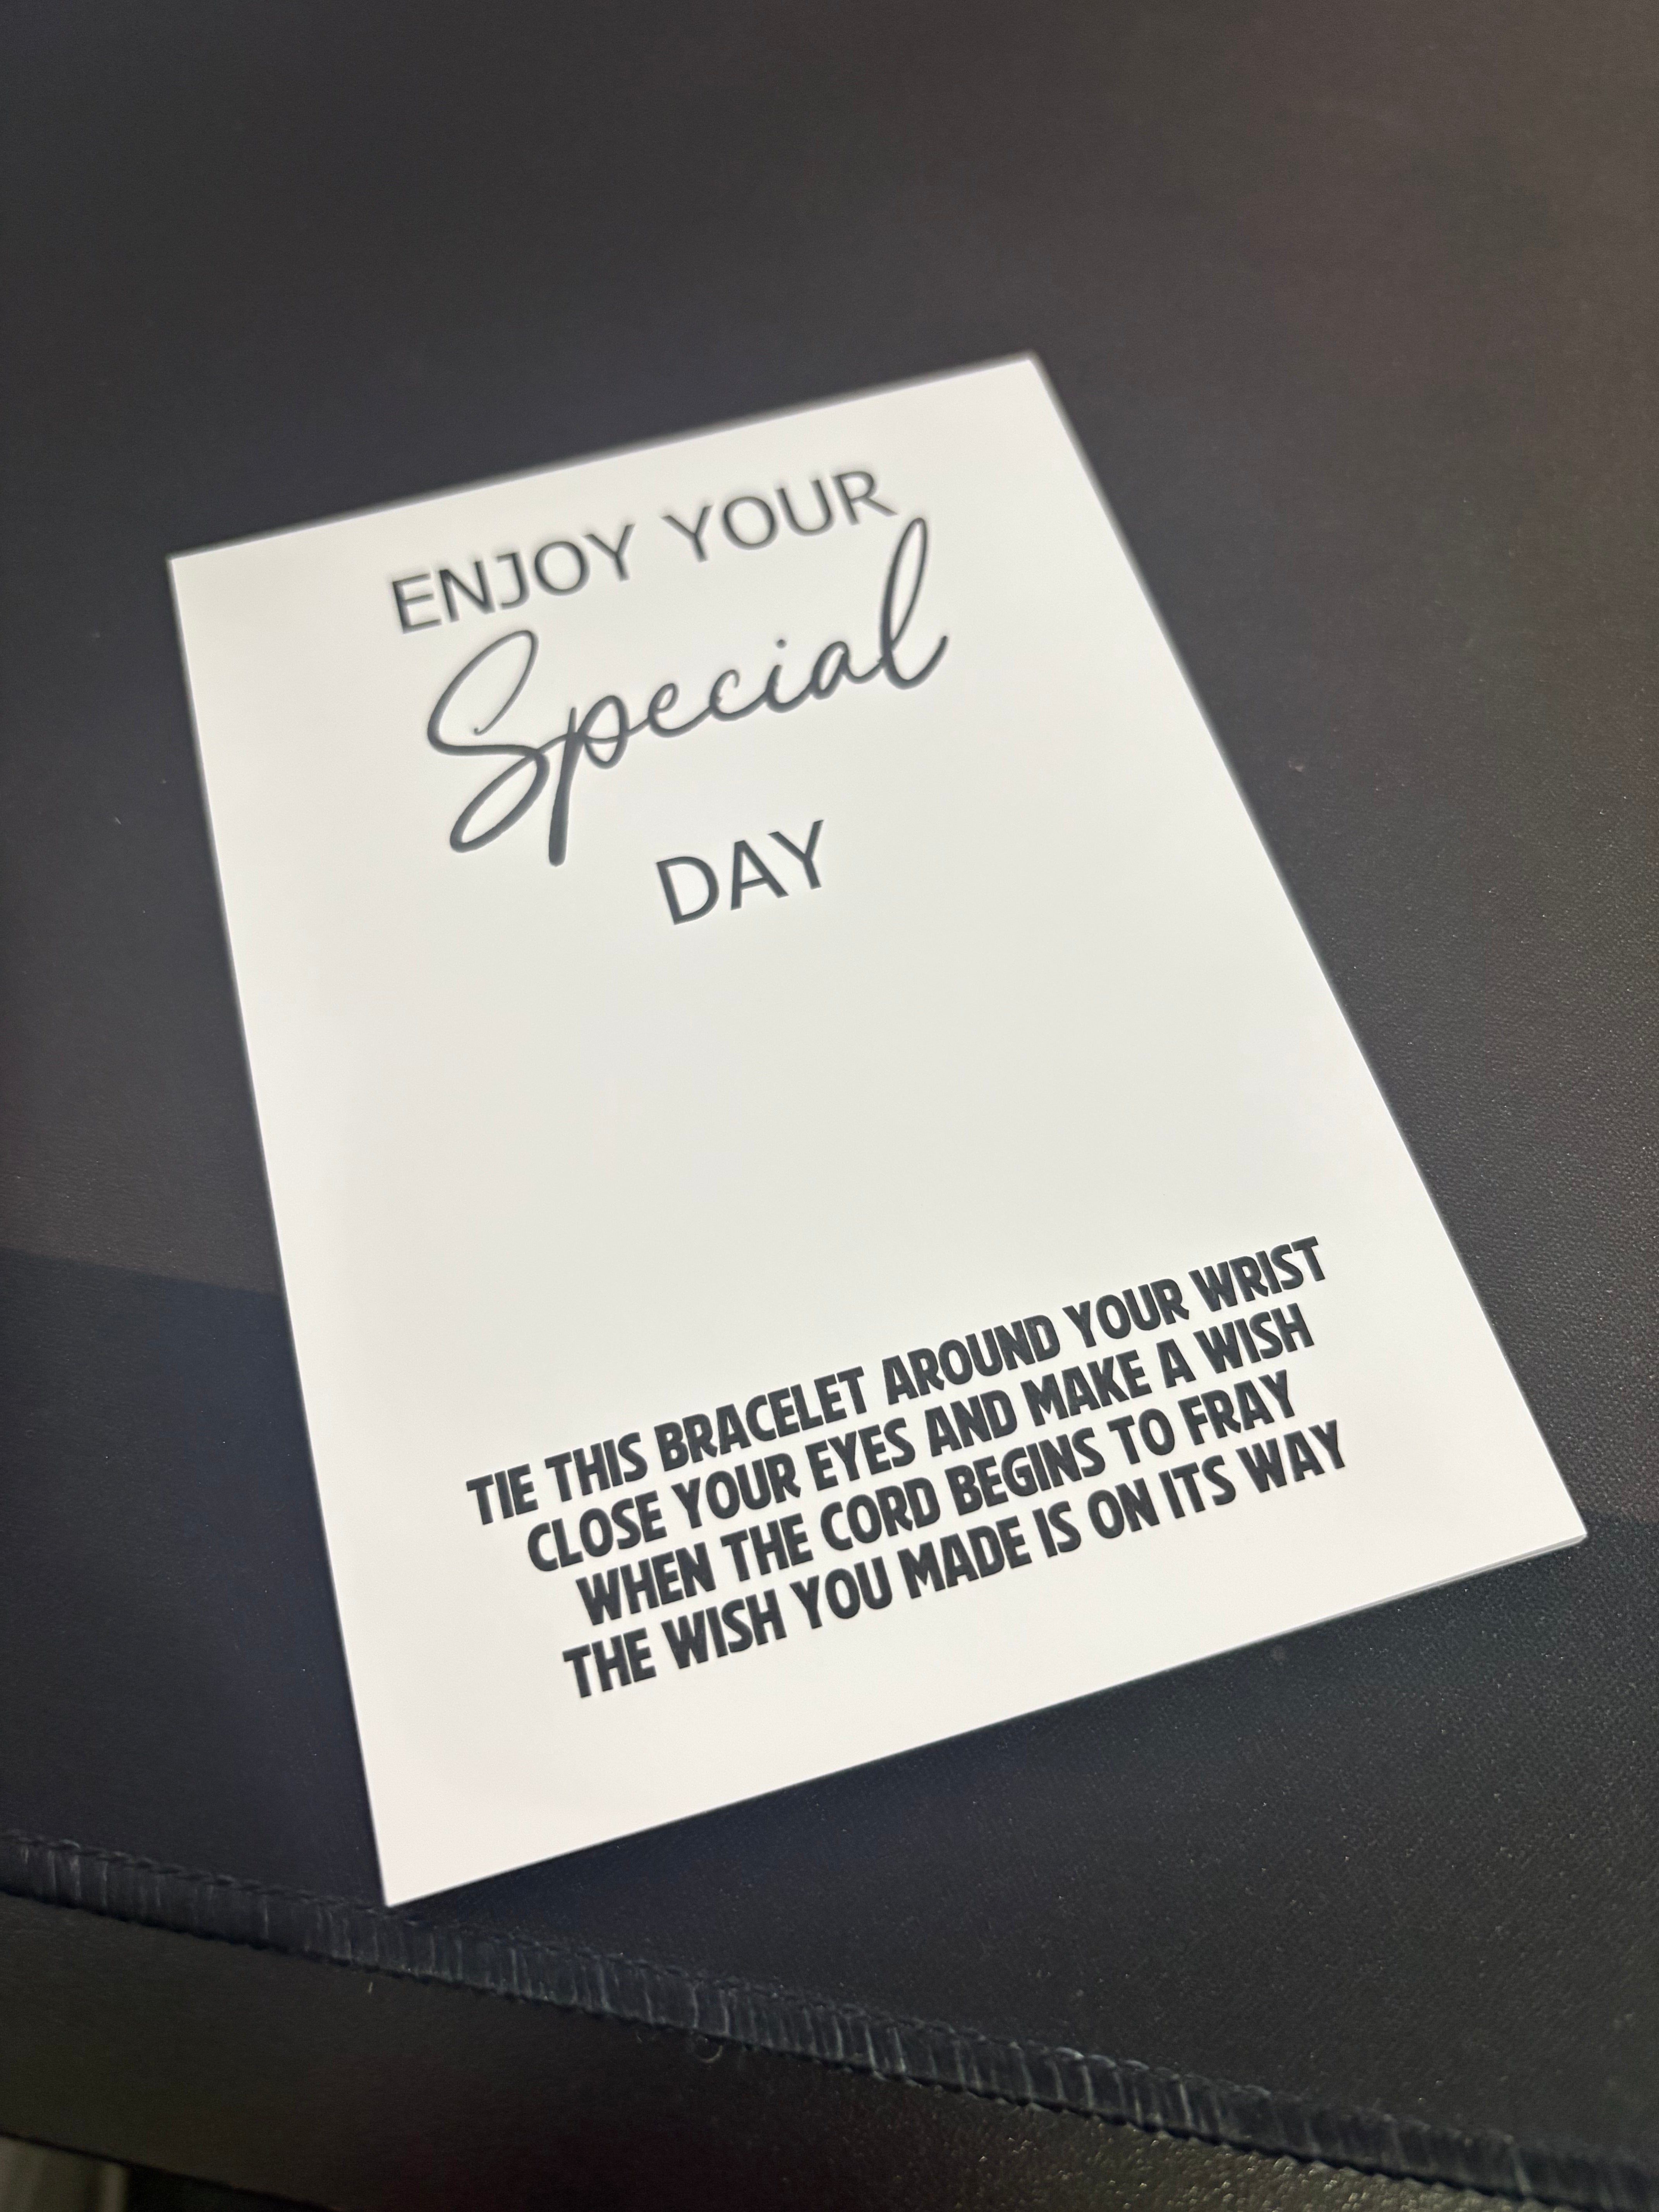 ENJOY YOUR
Special
DAY
TIE THIS BRACELET AROUND YOUR WRIST
CLOSE YOUR EYES AND MAKE A WISH
WHEN THE CORD BEGINS TO FRAY
THE WISH YOU MADE IS ON ITS WAY